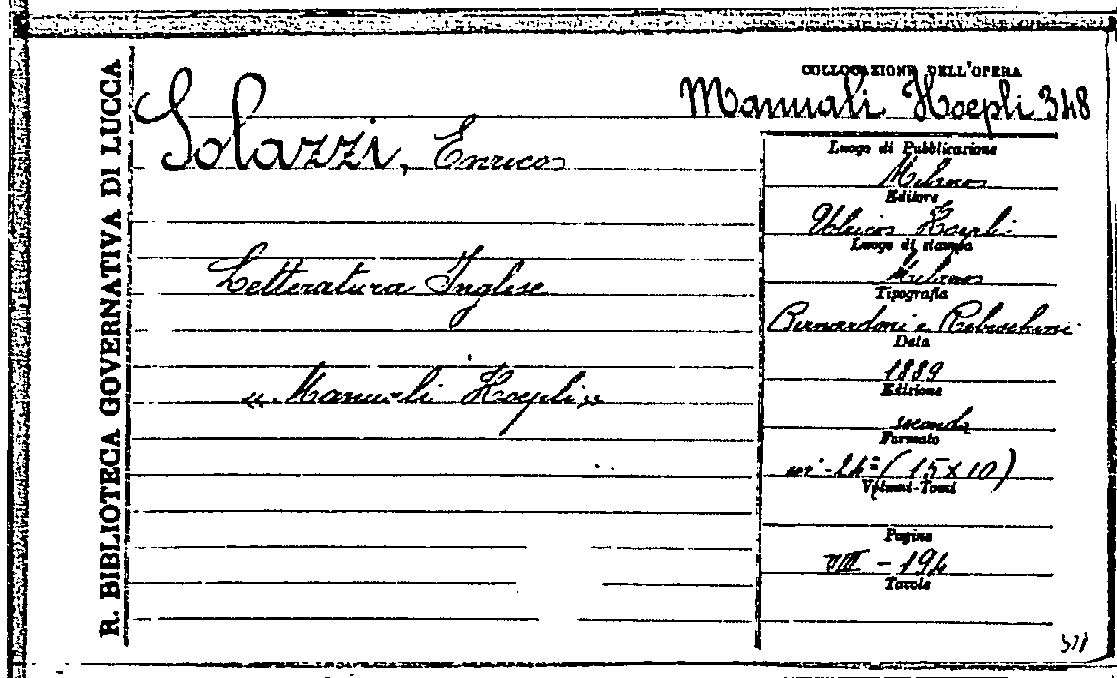 R. BIBLIOTECA GOVERNATIVA DI LUCCA
COLLOCAZIONE DELL'OPERA
Manuali Hoepli 348
Solazzi, Enrico
Letteratura Inglese
« Manuali Hoepli »
Luogo di Pubblicazione
Milano
Editore
Ulrico Hoepli
Luogo di stampa
Milano
Tipografia
Bernardoni e Rebeschini
Data
1889
Edizione
seconda
Formato
in-24° (15x10)
Volumi-Tomi
Pagine
VIII - 194
Tavole